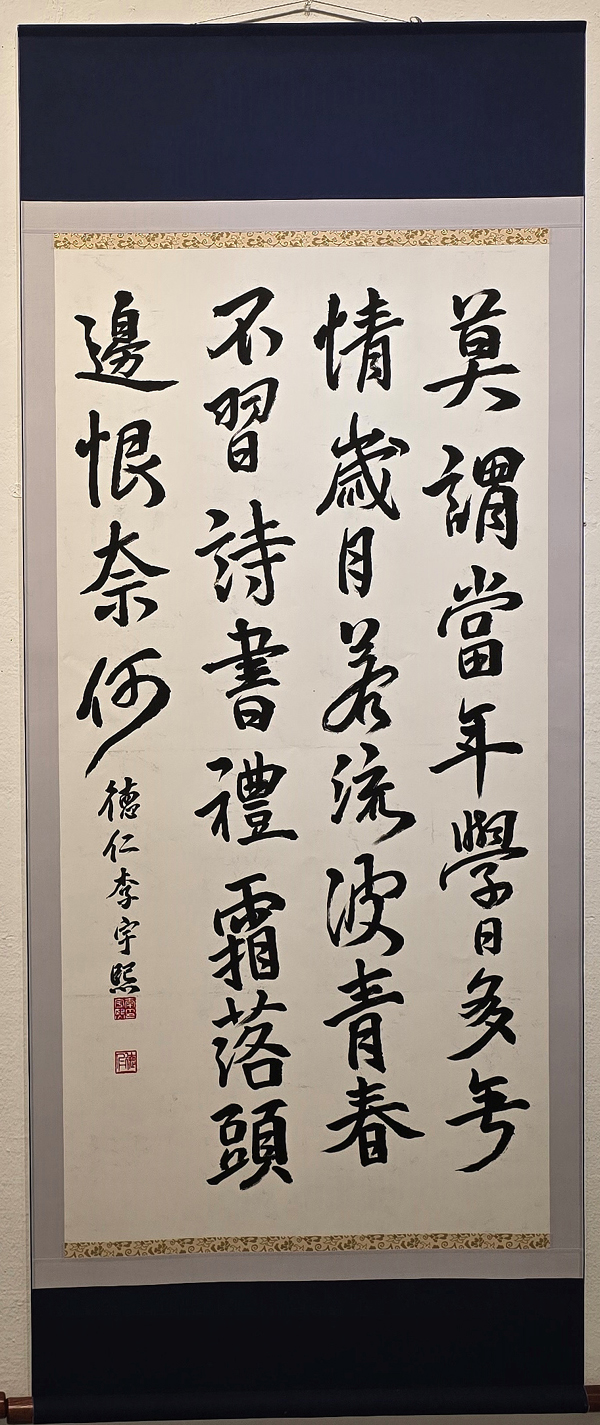 莫謂當年學日多無
情歲月若流波青春
不習詩書禮霜落頭
邊恨奈何
德仁李宇熙